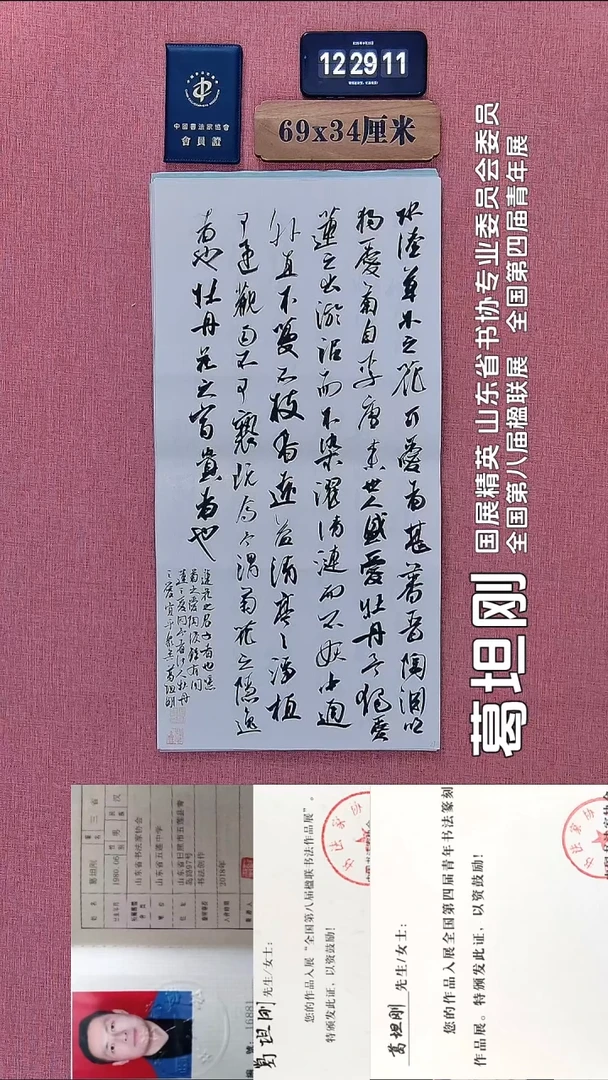 中國書法家協會
會員證
12 29 11
69x34厘米
水陸草木之花可愛者甚蕃晉陶淵明
獨愛菊自李唐來世人盛愛牡丹予獨愛
蓮之出淤泥而不染濯清漣而不妖中通
外直不蔓不枝香遠益清亭〻淨植
可遠觀而不可褻玩焉予謂菊花之隱逸
者也牡丹花之富貴者也
蓮花之君子者也噫
菊之愛陶後鮮有聞
蓮之愛同予者何人牡丹
之愛宜乎衆矣葛坦剛
国展精英 山东省书协专业委员会委员
全国第八届楹联展 全国第四届青年展
葛坦刚
葛坦刚
山东省书法家协会
山东省五莲中学
书法创作
2018年
16881
葛坦刚 先生/女士:
您的作品入展“全国第八届楹联书法作品展”。
特颁发此证，以资鼓励!
葛坦刚 先生/女士:
您的作品入展全国第四届青年书法篆刻
作品展。特颁发此证，以资鼓励!